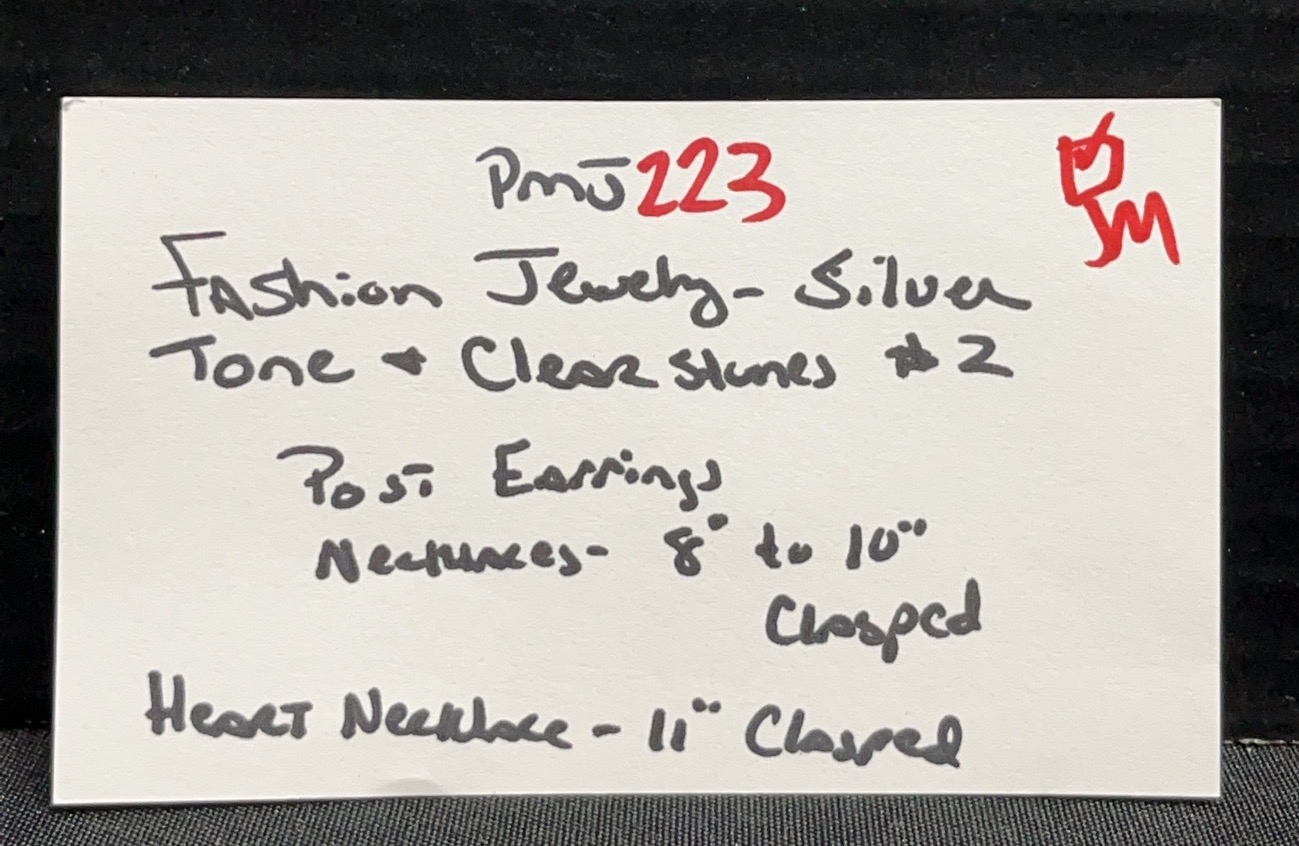 PmJ223
Fashion Jewelry - Silver
Tone + Clear Stones #2
Post Earrings
Necklaces - 8" to 10"
Clasped
Heart Necklace - 11" Clasped